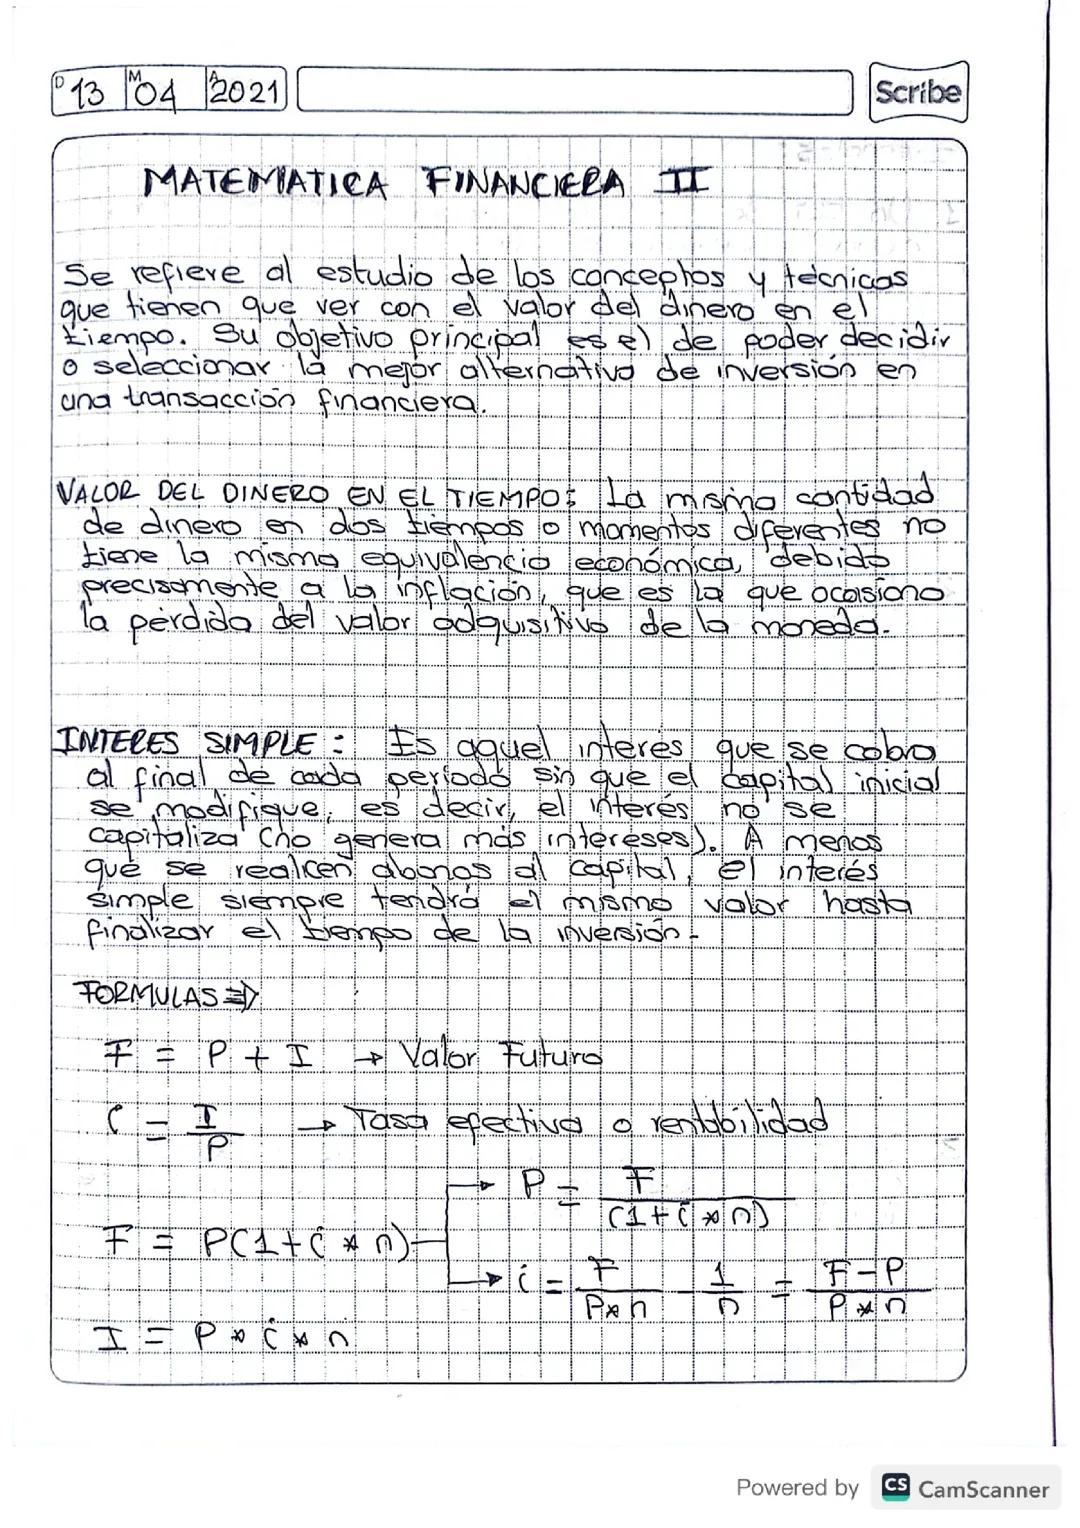 D 13 M 04 A 2021 Scribe
MATEMATICA FINANCIERA II
Se refiere al estudio de los conceptos y técnicas
que tienen que ver con el valor del dinero en el
tiempo. Su objetivo principal es el de poder decidir
o seleccionar la mejor alternativa de inversión en
una transacción financiera.
VALOR DEL DINERO EN EL TIEMPO: La misma cantidad
de dinero en dos tiempos o momentos diferentes no
tiene la misma equivalencia económica, debido
precisamente a la inflación, que es la que ocasiona
la pérdida del valor adquisitivo de la moneda.
INTERES SIMPLE: Es aquel interés que se cobra
al final de cada período sin que el capital inicial
se modifique, es decir, el interés no se
capitaliza (no genera más intereses). A menos
que se realicen abonos al capital, el interés
simple siempre tendrá el mismo valor hasta
finalizar el tiempo de la inversión.
FORMULAS ⇒
F = P + I → Valor Futuro
i = I/P → Tasa efectiva o rentabilidad
→ P = F/(1+i*n)
F = P(1+i*n)
→ i = F/P*n - 1/n = F-P/P*n
I = P*i*n
Powered by CS CamScanner